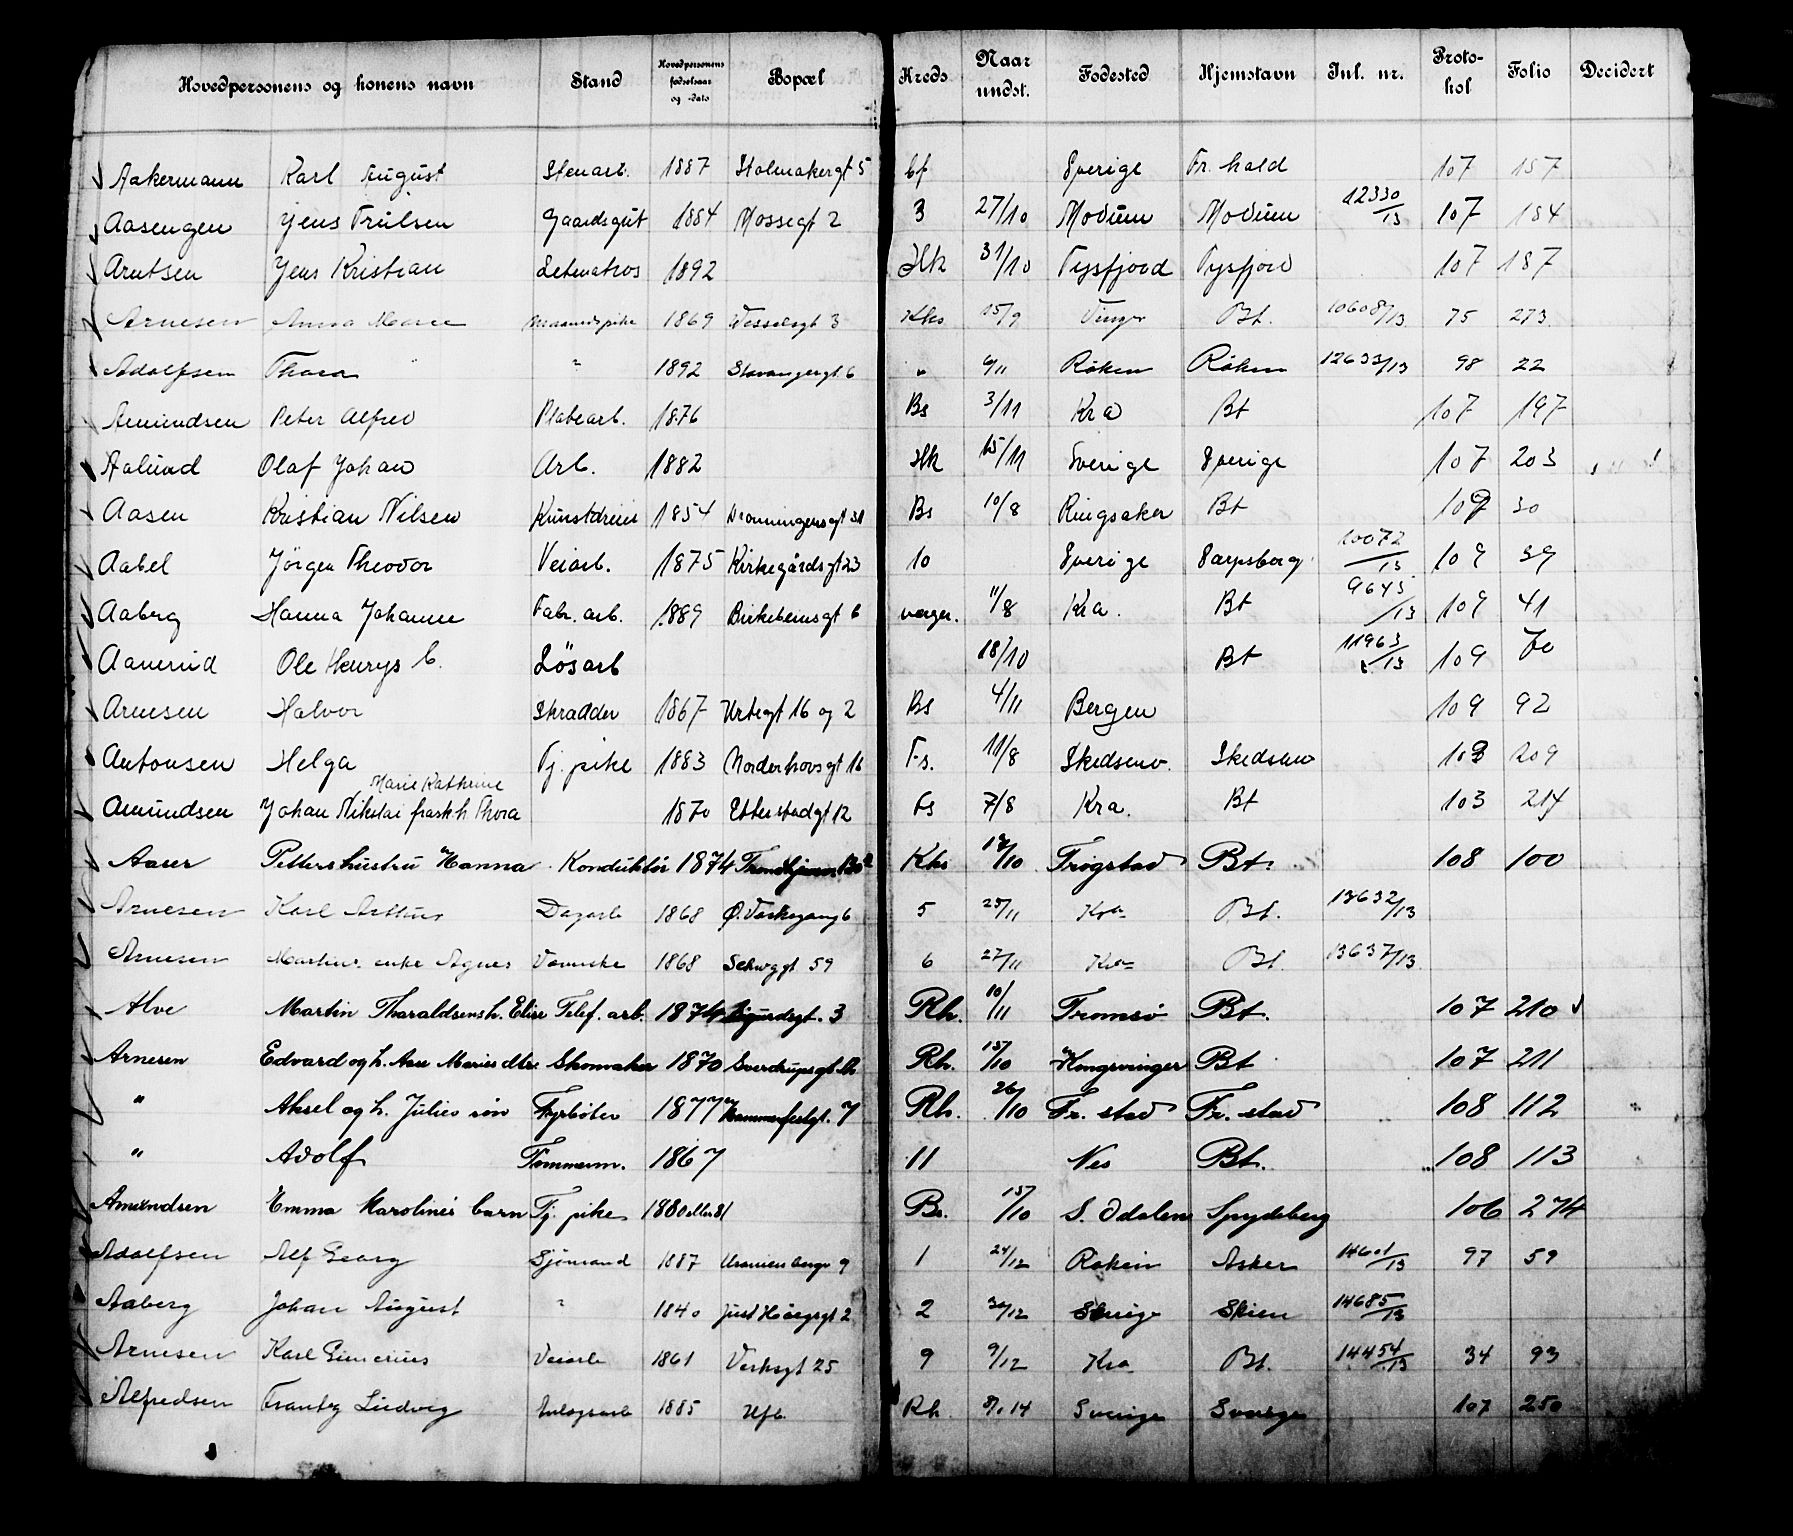 Hovedpersonens og konens navn Stand Hovedpersonens fødselsaar og -dato Bopæl Kreds Naar undst. Fødested Hjemstavn Jnl. nr. Protokol Folio Decidert
Aakermann Karl August Stenarb. 1887 Stolmakergt 5 Sverige Fr. hald 107 157
Aasengen Jens Trulsen Gaardsgut 1884 Mossegt 2 3 27/10 Modum Modum 12330/13 107 184
Arntsen Jens Kristian Letmatros 1892 Hk 31/10 Tysfjord Tysfjord 107 187
Arnesen Anna Marie Maanedspike 1869 Wesselsgt 3 Khs 15/9 Vinger Bt. 10608/13 75 273
Adolfsen Thora " " 1892 Stavangergt. 6 " 6/11 Røken Røken 12633/13 98 22
Amundsen Peter Alfred Platearb. 1876 Bs 3/11 Kra Bt 107 197
Aalund Olaf Johan Arb. 1882 Hk 15/11 Sverige Sverige 107 203
Aasen Kristian Nilsen Kunstdreier 1854 Dronningensgt 31 Bs 10/8 Ringsaker Bt 109 30
Aabel Jörgen Theodor Veiarb. 1875 Kirkegårdsgt 23 10 Sverige Sarpsborg 10072/13 109 39
Aaberg Hanna Johanne Fabr. arb. 1889 Birkebeinsgt 6 verger. 11/8 Kra. Bt 9645/13 109 41
Aanerud Ole Henrys C. Lösarb 18/10 Bt 11963/13 109 70
Arnesen Halvor Skradder 1867 Urtegt 16 og 2 Bs 4/11 Bergen 109 92
Antonsen Helga Tj. pike 1883 Norderhovsgt 16 Fs. 11/8 Skedsmo. Skedsmo 103 209
Marie Kathrine
Amundsen Johan Nikolai frask. h. Thora 1870 Etterstadgt 12 Fs 7/8 Kra. Bt 103 214
Aaser Petters hustru Hanna Konduktør 1874 Khs 10 Trøgstad Bt. 108 100
Arnesen Karl Arthur Dagarb 1868 Ø. Vaskegang 6 5 25/11 Kra Bt. 13632/13
Arnesen Martins enke Agnes Vaskeske 1868 Schwggt 59 6 27/11 Kra Bt. 13637/13
Alve Martin Tharaldsens h. Elise Telef. arb. 1874 Sigurdsgt. 3 Rh. 10/11 Tromsø Bt. 107 210
Arnesen Edvard og h. Ane Maries dtr. Skomaker 1870 Sverdrupsgt. Rh. 15/10 Kongsvinger Bt 107 211
" Aksel og h. Julies søn Fyrbøter 1877 Hammerfestgt. 7 Rh. 26/10 Fr. stad Fr. stad 108 112
" Adolf Tømmerm. 1867 11 Nes Bt. 108 113
Amundsen Emma Karolines barn Tj. pike 1880 eller 81 Bs. 15/10 S. Odalen Spydeberg 106 274
Adolfsen Alf Georg Sjømand 1887 Uranienborgv 9 1 24/12 Røken Asker 14601/13 97 59
Aaberg Johan August " 1840 Just Høegsgt 2 2 30/12 Sverige Skien 14685/13
Arnesen Karl Gunerius Veiarb 1861 Verksgt 25 9 9/12 Kra Bt. 14454/13 34 93
Alfredsen Frantz Ludvig Anlegsarb 1885 Ufb. Rh. 8/1 14 Sverige Sverige 107 250